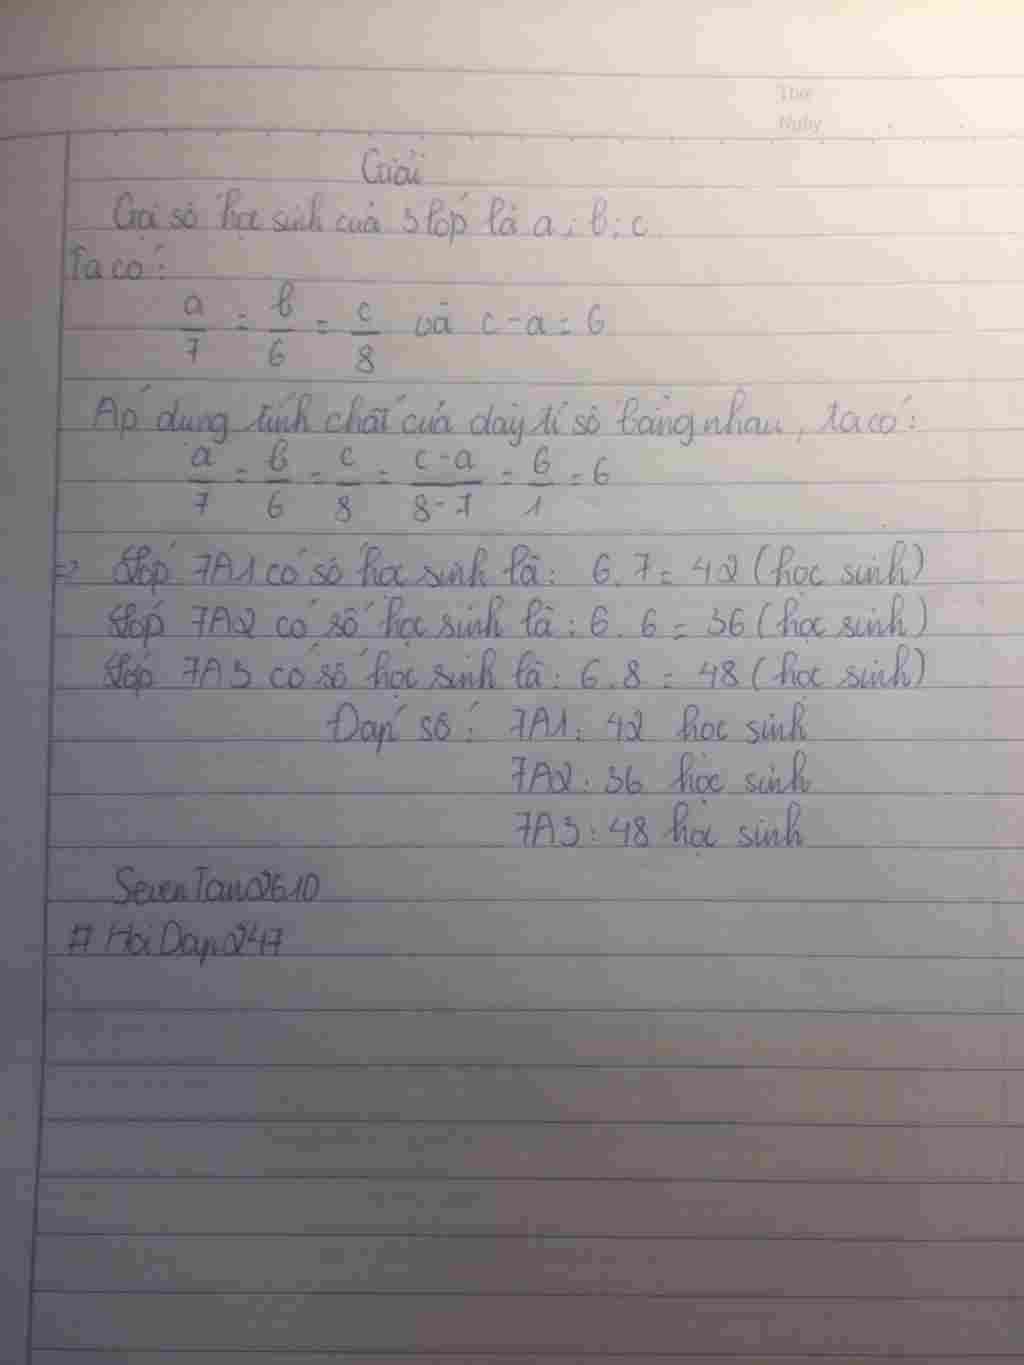 Thứ
Ngày
Giải
Gọi số học sinh của 3 lớp là a; b; c
Ta có:
a/7 = b/6 = c/8 và c - a = 6
Áp dụng tính chất của dãy tỉ số bằng nhau, ta có:
a/7 = b/6 = c/8 = c-a/8-7 = 6/1 = 6
=> Lớp 7A1 có số học sinh là: 6.7 = 42 (học sinh)
Lớp 7A2 có số học sinh là: 6.6 = 36 (học sinh)
Lớp 7A3 có số học sinh là: 6.8 = 48 (học sinh)
Đáp số: 7A1: 42 học sinh
7A2: 36 học sinh
7A3: 48 học sinh
SevenTan2610
#HoiDap247